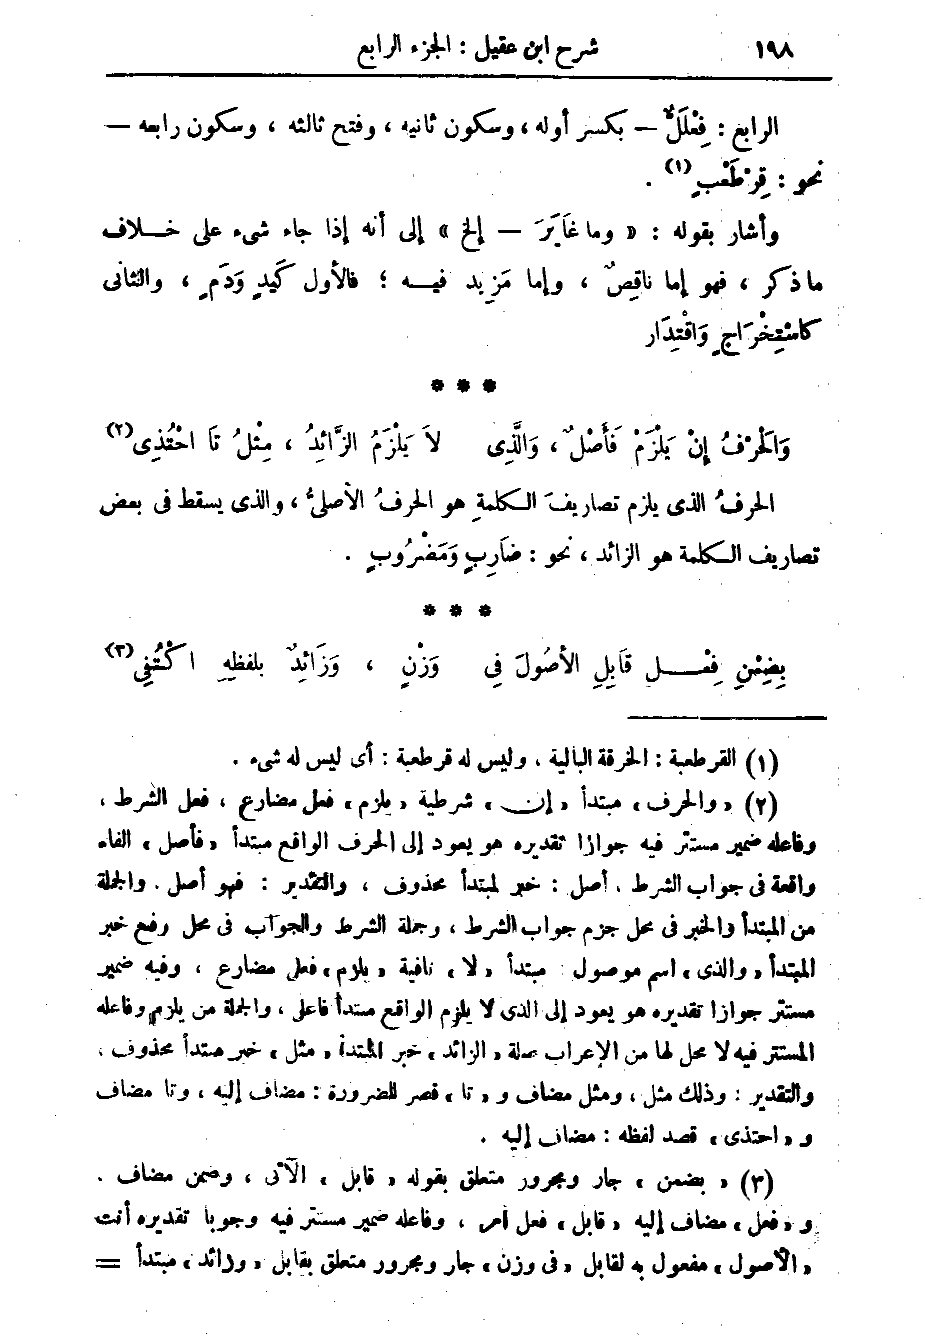 ١٩٨ شرح ابن عقيل : الجزء الرابع
الرابع : فِعْلَلٌّ — بكسر أوله ، وسكون ثانيه ، وفتح ثالثه ، وسكون رابعه —
نحو : قِرْطَعْبٍ (١) .
وأشار بقوله : « وما غَايَرَ — إلخ » إلى أنه إذا جاء شىء على خلاف
ما ذكر ، فهو إما ناقِصٌ ، وإما مَزِيد فيه ؛ فالأول كَيَدٍ وَدَمٍ ، والثانى
كاسْتِخْرَاجٍ وَاقْتِدَار
* * *
وَالْحَرْفُ إِنْ يَلْزَمْ فَأَصْلٌ ، وَالَّذِى لاَ يَلْزَمُ الزَّائِدُ ، مِثْلُ تَا احْتُذِى (٢)
الحرفُ الذى يلزم تصاريفَ الكلمةِ هو الحرفُ الأصلىُّ ، والذى يسقط فى بعض
تصاريف الكلمة هو الزائد ، نحو : ضَارِبٍ وَمَضْرُوبٍ .
* * *
بِضِمْنِ فِعْلٍ قَابِلِ الأصُولَ فِى وَزْنٍ ، وَزَائِدٌ بلفظهِ اكْتُفِى (٣)
(١) القرطعبة : الخرقة البالية ، وليس له قرطعبة : أى ليس له شىء .
(٢) « والحرف » مبتدأ « إن » شرطية « يلزم » فعل مضارع ، فعل الشرط ،
وفاعله ضمير مستتر فيه جوازا تقديره هو يعود إلى الحرف الواقع مبتدأ « فأصل » الفاء
واقعة فى جواب الشرط . أصل : خبر لمبتدأ محذوف ، والتقدير : فهو أصل . والجملة
من المبتدأ والخبر فى محل جزم جواب الشرط ، وجملة الشرط والجواب فى محل رفع خبر
المبتدأ « والذى » اسم موصول مبتدأ « لا » نافية « يلزم » فعل مضارع ، وفيه ضمير
مستتر جوازا تقديره هو يعود إلى الذى لا يلزم الواقع مبتدأ فاعل ، والجملة من يلزم وفاعله
المستتر فيه لا محل لها من الإعراب صلة « الزائد » خبر المبتدة « مثل » خبر مبتدأ محذوف ،
والتقدير : وذلك مثل ، ومثل مضاف و « تا » قصر للضرورة : مضاف إليه ، وتا مضاف
و « احتذى » قصد لفظه : مضاف إليه .
(٣) « بضمن » جار ومجرور متعلق بقوله « قابل » الآتى ، وضمن مضاف .
و « فعل » مضاف إليه « قابل » فعل أمر ، وفاعله ضمير مستتر فيه وجوبا تقديره أنت
« الأصول » مفعول به لقابل « فى وزن » جار ومجرور متعلق بقابل « وزائد » مبتدأ =